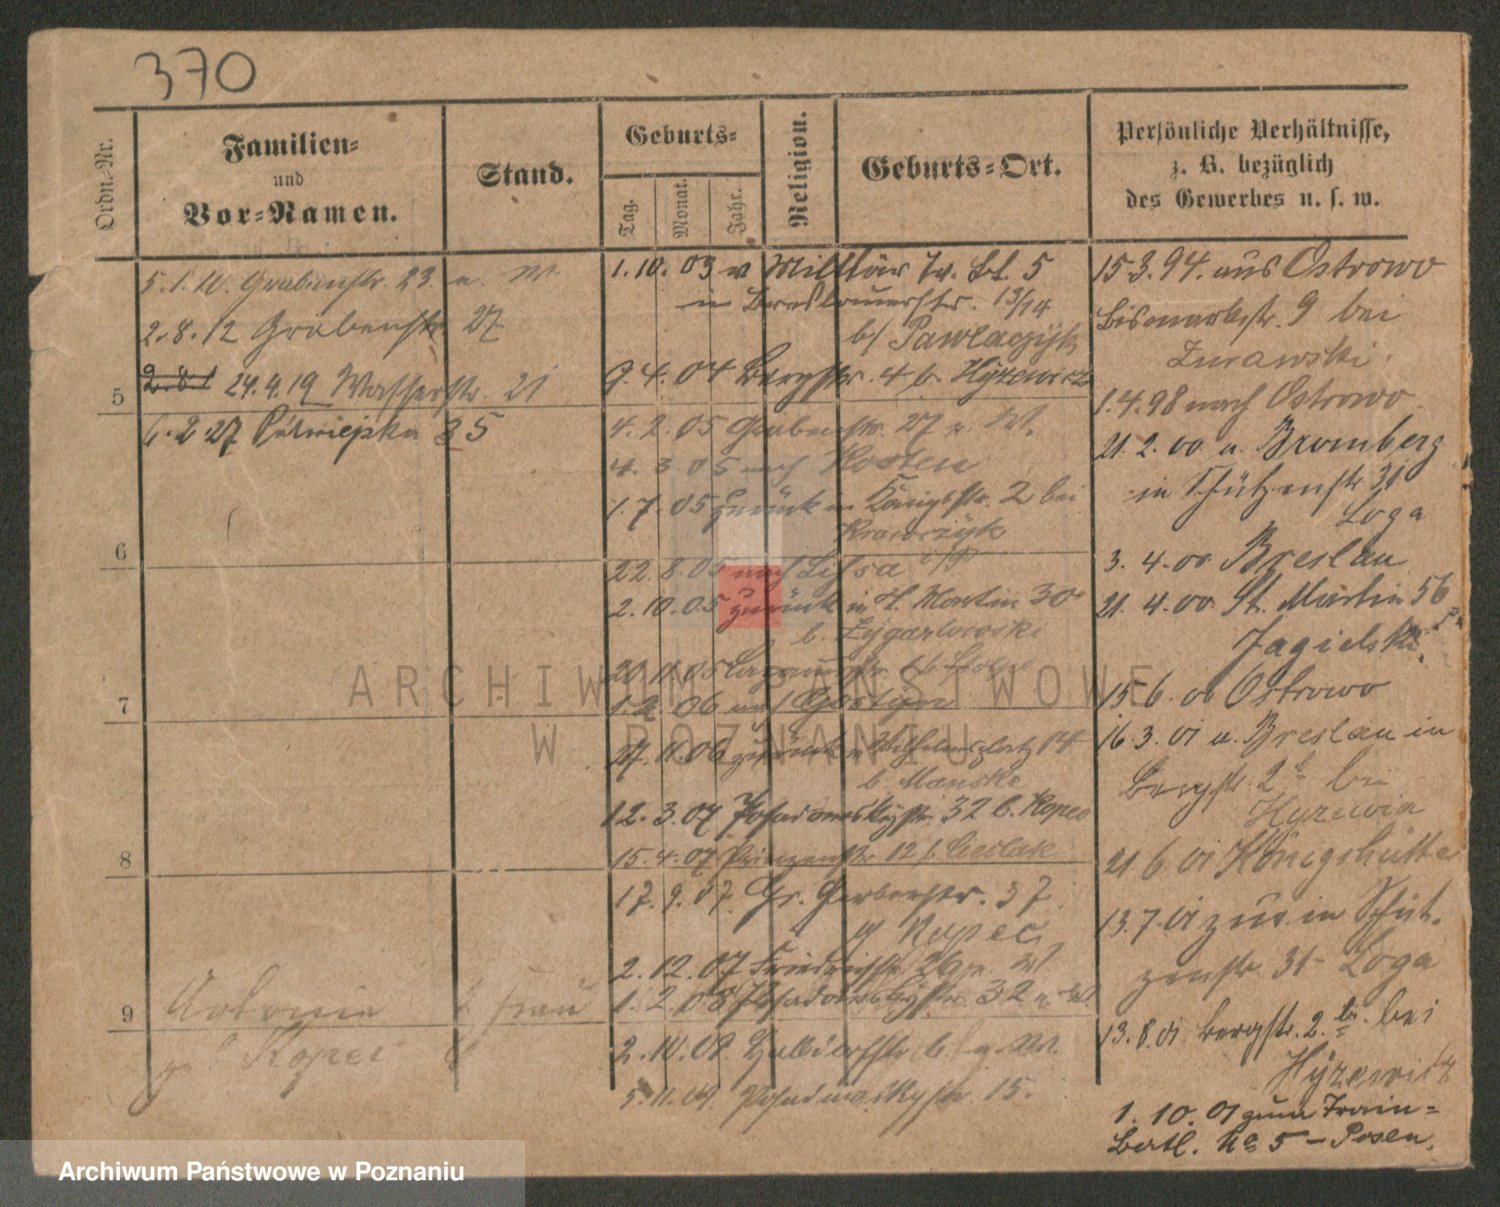 370
Ordn.-Nr.
Familien-
und
Vor-Namen.
Stand.
Geburts-
Tag.
Monat.
Jahr.
Religion.
Geburts-Ort.
Persönliche Verhältnisse,
z. B. bezüglich
des Gewerbes u. s. w.
5.1.10. Grabenstr. 23. u. W.
2.8.12 Grabenstr. 27
24.9.19 Wasserstr. 21
5
6.2.27 Półwiejska 35
6
7
8
9
Antonie Frau
Kopec
1.10.03 v Militär Tr. Bt. 5
in Breslauerstr. 13/14
b/ Pawlaczyk
9.4.04 Bergstr. 4 b. Hyzewicz
4.2.05 Grabenstr. 27 u. W.
4.3.05 nach Kosten
1.7.05 zurück in Königstr. 2 bei
Krawczyk
22.8.05 nach Lissa i/P
2.10.05 zurück in St. Martin 30
b.
20.11.05
1.2.06 nach Gostyn
27.11.06 zurück Wilhelmsplatz 14
b. Manske
12.3.07 Posadowskystr. 32 b. Kopec
15.4.07 Prinzenstr. 12 b. Cieslak
17.9.07. Gr. Gerberstr. 37
Kopec
2.12.07 Friedrichstr. 26 u. W
1.2.08 Posadowskystr. 32 u. W
2.10.09. u. W.
5.11.09. Posadowskystr. 15.
15 3.94. aus Ostrowo
Bismarkstr. 9 bei
Zurawski.
1.4.98 nach Ostrowo
21.2.00 a. Bromberg
in Schützenstr. 31
Loga
3.4.00 Breslau
21.4.00. St. Martin 56
Jagielski
15 6.00 Ostrowo
16.3.01 a. Breslau in
Bergstr. 2b bei
Hyzewicz
21 6.01 Königshütte
13.7.01 zur. in Schüt-
zenstr. 31 - Loga
13.8.01 Bergstr. 2.b. bei
Hyzewicz
1.10.01 zum Train-
Batl. No 5 - Posen.
ARCHIWUM PAŃSTWOWE
W POZNANIU
Archiwum Państwowe w Poznaniu